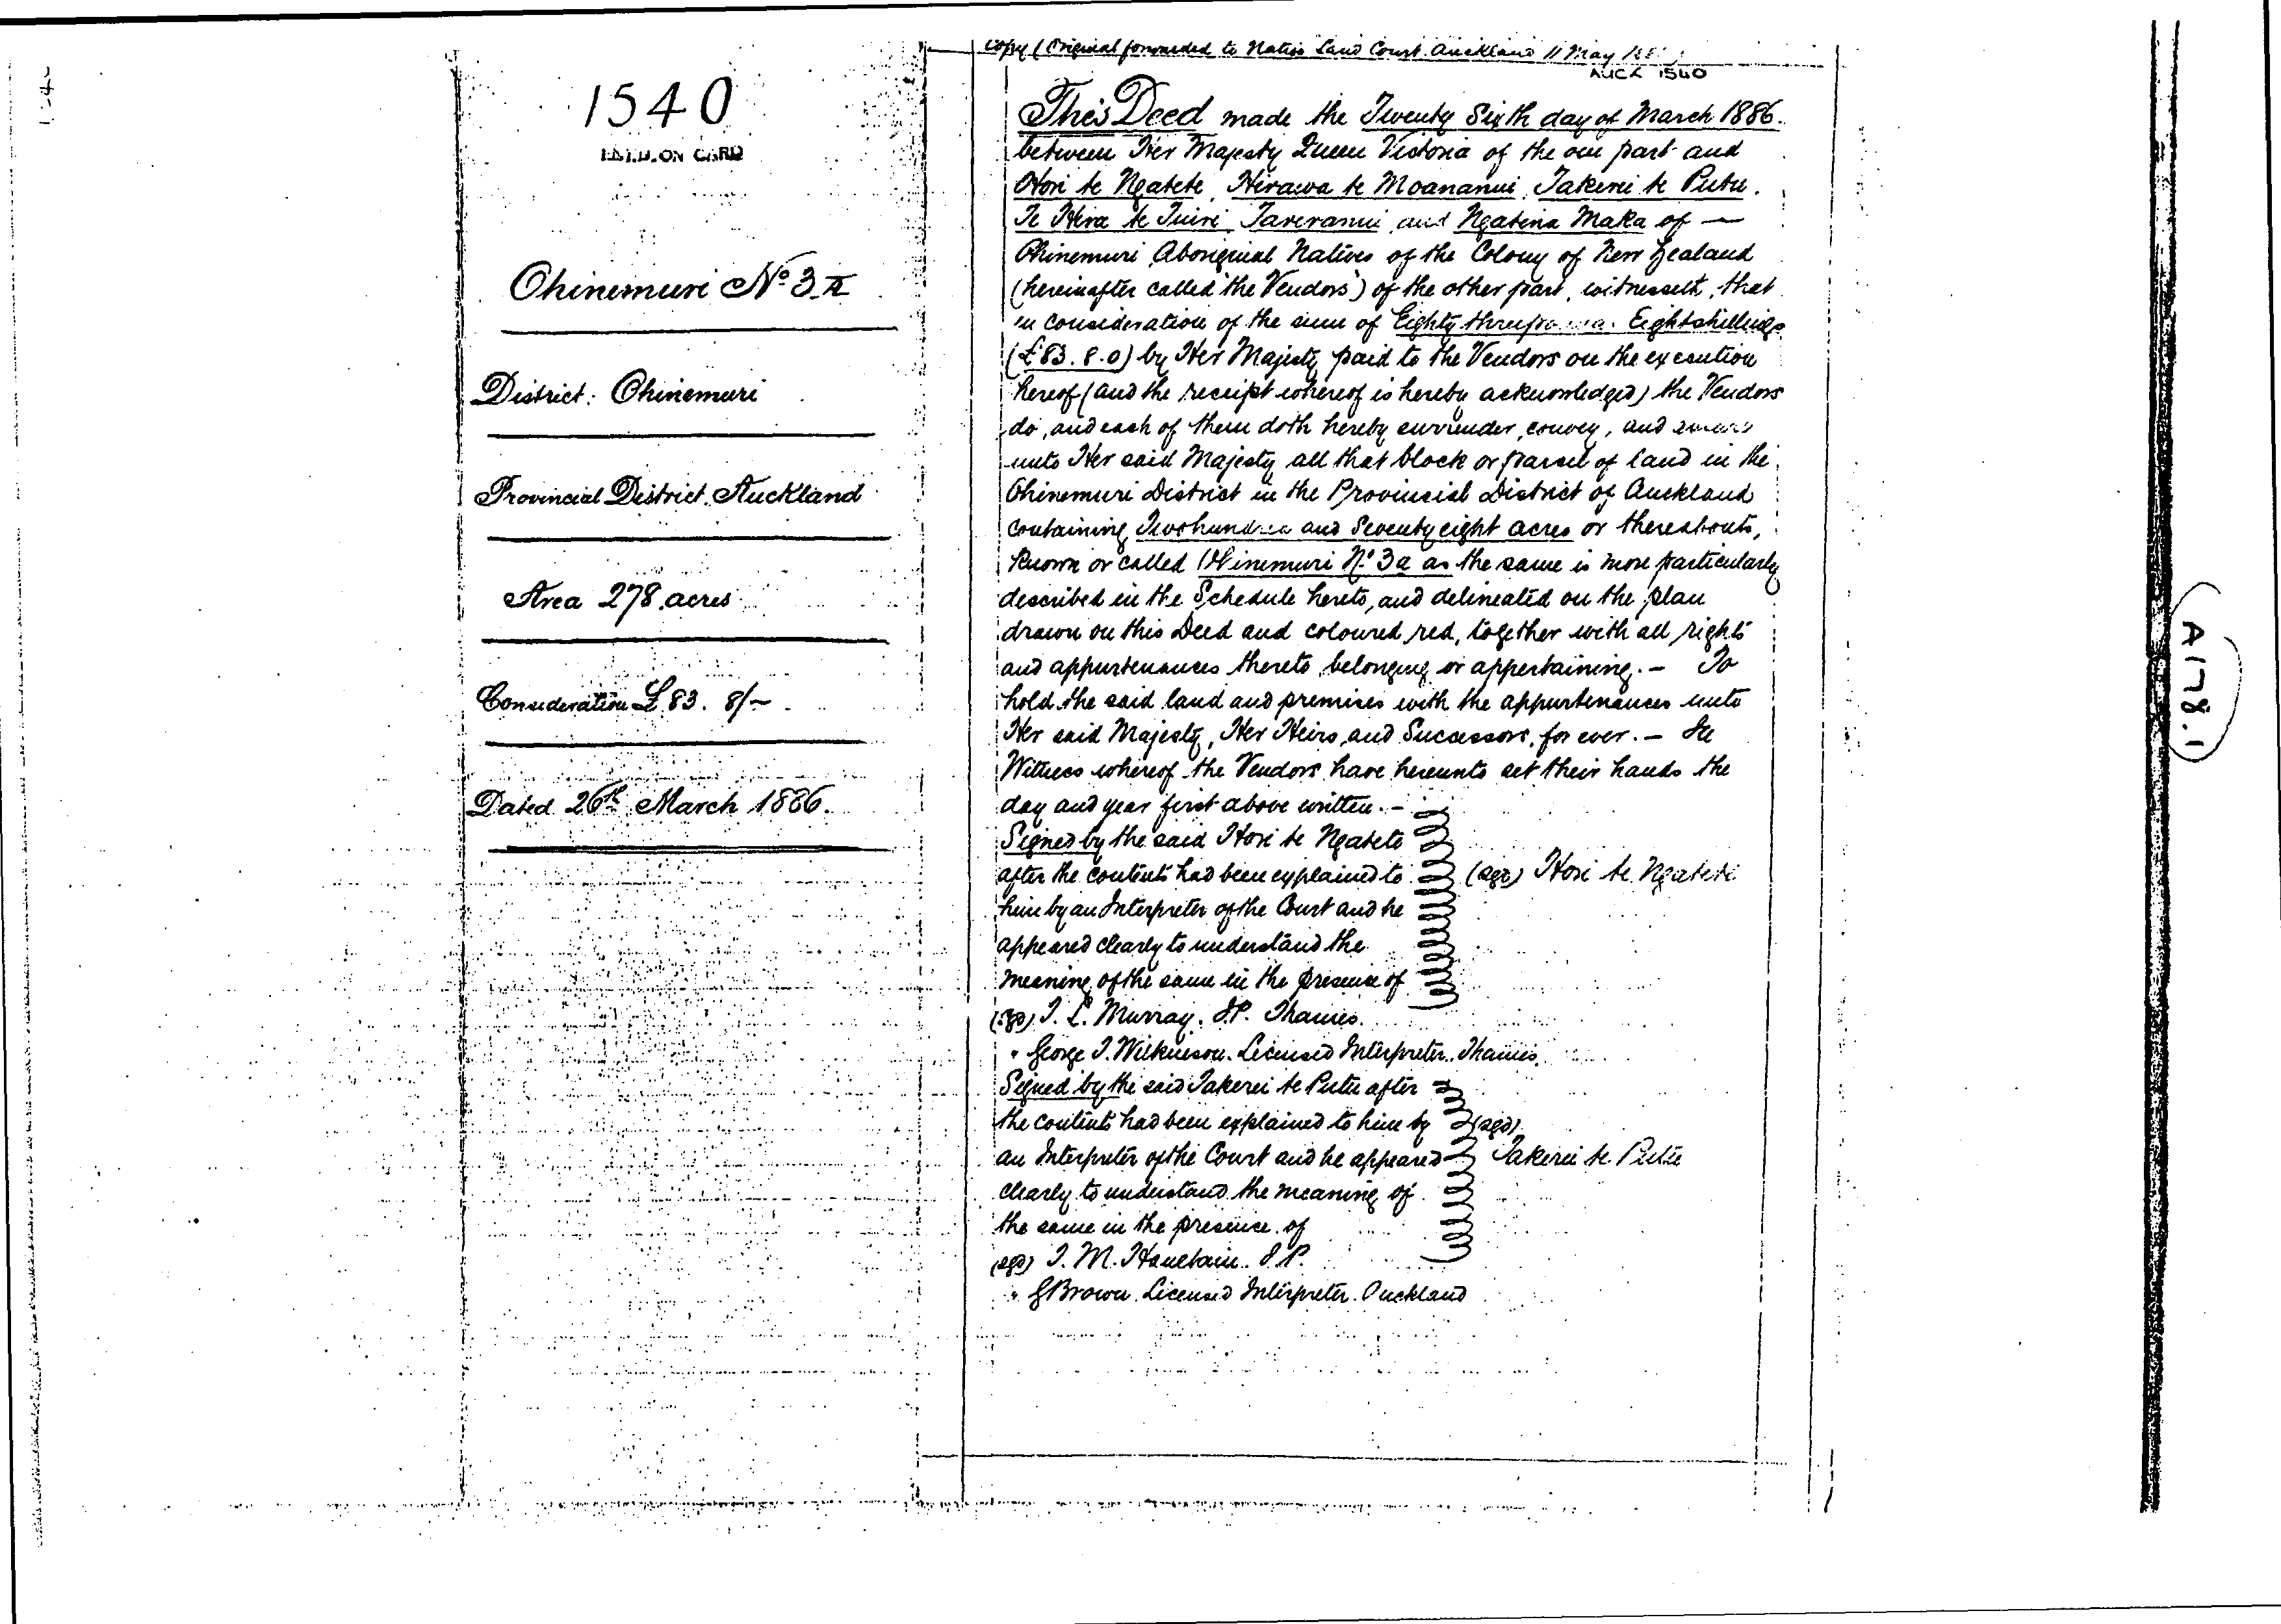 1540
ENTD. ON CARD
Ohinemuri No 3A
District: Ohinemuri
Provincial District. Auckland
Area 278 acres
Consideration £ 83. 8/-
Dated 26th March 1886.
Copy (Original forwarded to Native Land Court. Auckland 11 May
AUCK 1540
This Deed made the Twenty Sixth day of March 1886.
between Her Majesty Queen Victoria of the one part and
Hori te Ngatete, Hirawa te Moananui, Takerei te Putu.
Te Hira te Tuiri, Tareranui and Ngatina Maka of —
Ohinemuri Aboriginal Natives of the Colony of New Zealand
(hereinafter called "the Vendors") of the other part, witnesseth, that
in consideration of the sum of Eighty three pounds Eight shillings
(£83. 8. 0) by Her Majesty paid to the Vendors on the execution
hereof (and the receipt whereof is hereby acknowledged) the Vendors
do, and each of them doth hereby surrender, convey, and assure
unto Her said Majesty all that block or parcel of land in the
Ohinemuri District in the Provincial District of Auckland
containing Two hundred and Seventy eight acres or thereabouts,
Known or called Ohinemuri No 3a as the same is more particularly
described in the Schedule hereto, and delineated on the plan
drawn on this Deed and coloured red, together with all rights
and appurtenances thereto belonging or appertaining. — To
hold the said land and premises with the appurtenances unto
Her said Majesty, Her Heirs, and Successors, for ever. — In
Witness whereof the Vendors have hereunto set their hands the
day and year first above written. —
Signed by the said Hori te Ngatete
after the contents had been explained to (sgd) Hori te Ngatete
him by an Interpreter of the Court and he
appeared clearly to understand the
meaning of the same in the presence of
(sgd) T. L. Murray. J.P. Thames.
" George T. Wilkinson. Licensed Interpreter. Thames.
Signed by the said Takerei te Putu after
the contents had been explained to him by (sgd)
an Interpreter of the Court and he appeared Takerei te Putu
clearly to understand the meaning of
the same in the presence of
(sgd) T. M. Haultain. J.P.
" G Brown Licensed Interpreter. Auckland
A178.1